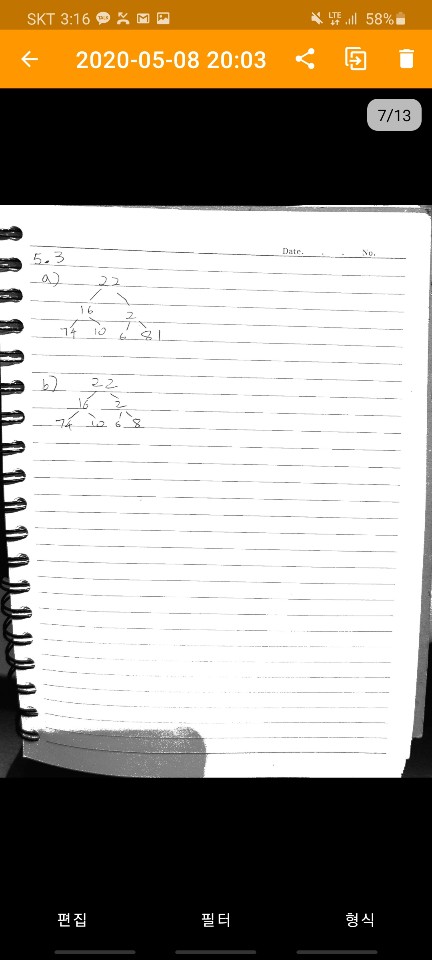 SKT 3:16 LTE 58%
2020-05-08 20:03
7/13
Date. . . No.
5.3
a) 22
16 2
74 10 6 81
b) 22
16 2
74 10 6 8
편집 필터 형식